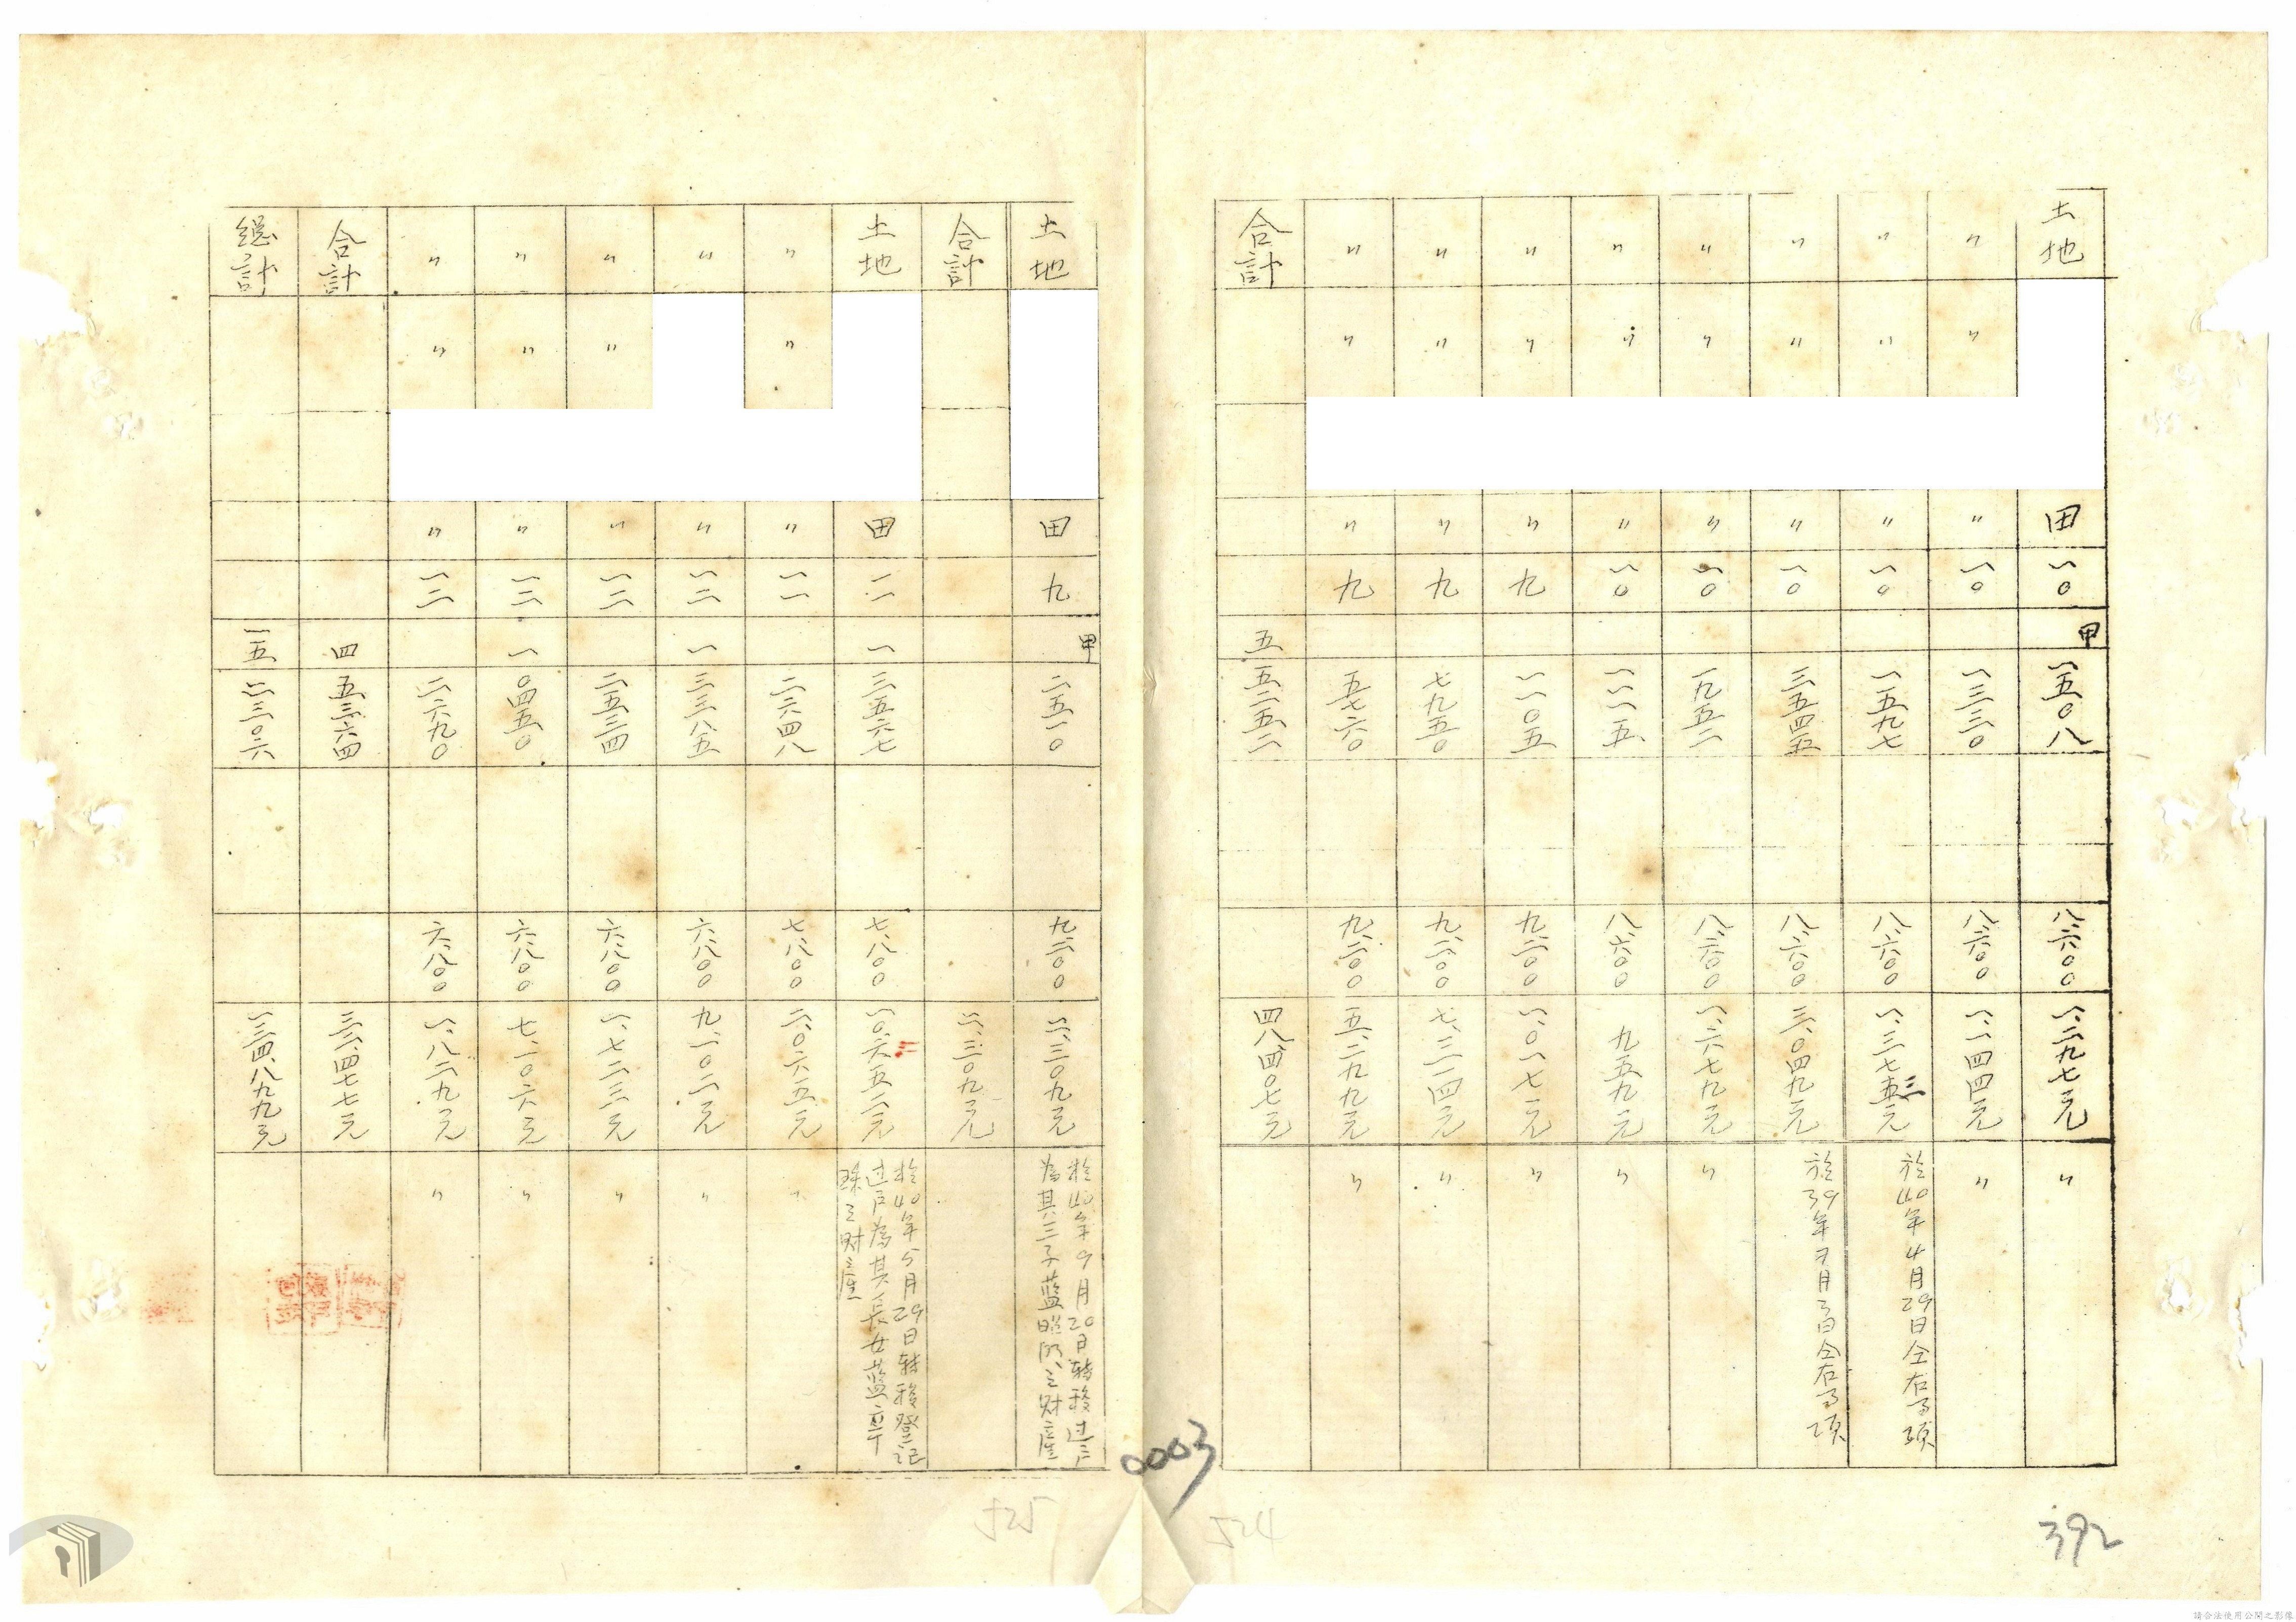 土地 田 一〇 甲 一五〇八 八六〇〇 一、二九七元 〃
〃 〃 〃 一〇 一三三〇 八六〇〇 一、一四四元 〃
〃 〃 〃 一〇 一五九七 八六〇〇 一、三七三元 於40年4月29日仝右事項
〃 〃 〃 一〇 三五四五 八六〇〇 三、〇四九元 於39年月3日仝右事項
〃 〃 〃 一〇 一九五二 八六〇〇 一、六七九元 〃
〃 〃 〃 一〇 一一一五 八六〇〇 九五九元 〃
〃 〃 〃 九 一一〇五 九二〇〇 一、〇一七元 〃
〃 〃 〃 九 七九五〇 九二〇〇 七、三一四元 〃
〃 〃 〃 九 五七六〇 九二〇〇 五、二九九元 〃
合計 五 四八、四〇七元
392
524
0003
土地 田 九 甲 二五一〇 九二〇〇 二、三〇九元 於40年9月20日轉移过戶
為其三子藍昭明之財產
合計 二、三〇九元
土地 田 一一 一 三五六七 七八〇〇 一〇、六五二元 於40年5月29日轉移登記
过戶為其長女藍
珠之財產
〃 〃 〃 一一 二六四八 七八〇〇 二、〇六五元 〃
〃 〃 一二 一 三三八五 六八〇〇 九、一〇二元 〃
〃 〃 〃 一二 二五三四 六八〇〇 一、七二三元 〃
〃 〃 〃 一二 一 〇四五〇 六八〇〇 七、一〇六元 〃
〃 〃 〃 一二 二六九〇 六八〇〇 一、八二九元 〃
合計 四 五三六四 三二、四七七元
總計 一五 二三〇六 一三四、八九九元
525
請合法使用公開之影像